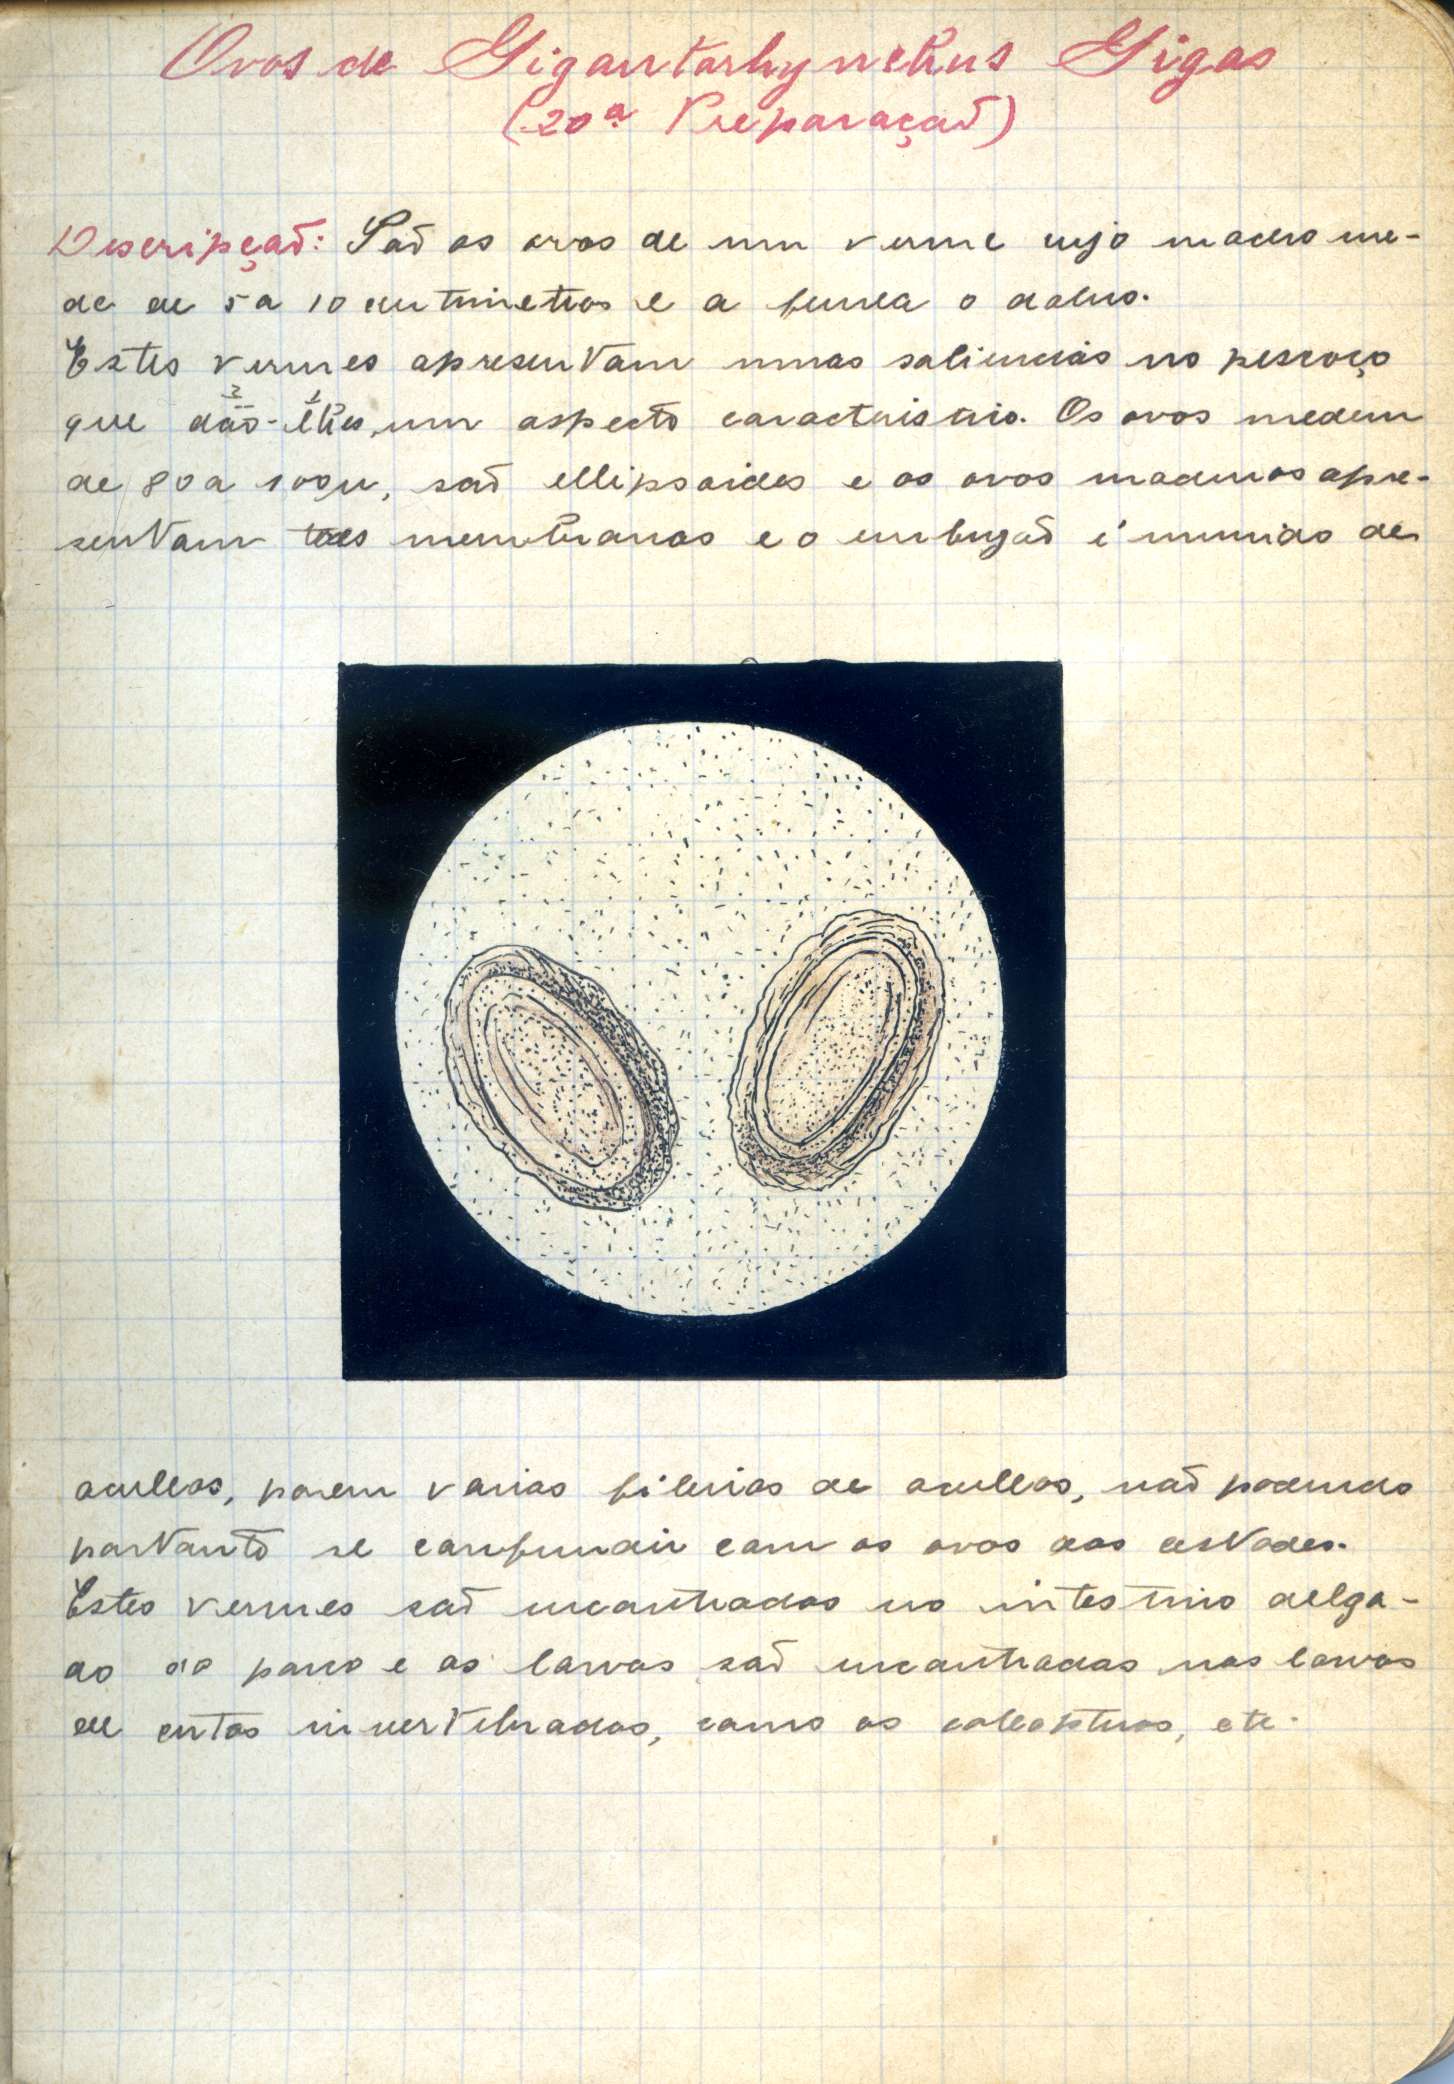 Ovos de Gigantorhynchus Gigas
(20ª Preparação)
Descripção: São os ovos de um verme cujo macho me-
de de 5 a 10 centimetros e a femea o dobro.
Estes vermes apresentam umas saliencias no pescoço
que dão-lhes, um aspecto caracteristico. Os ovos medem
de 80 a 100µ, são ellipsoides e os ovos maduros apre-
sentam tres membranas e o embryão é munido de
aculeos, porem varias fileiras de aculeos, não podendo
portanto se confundir com os ovos dos cestodes.
Estes vermes são encontrados no intestino delga-
do do porco e as larvas são encontradas nas larvas
de certos invertebrados, como os coleopteros, etc.